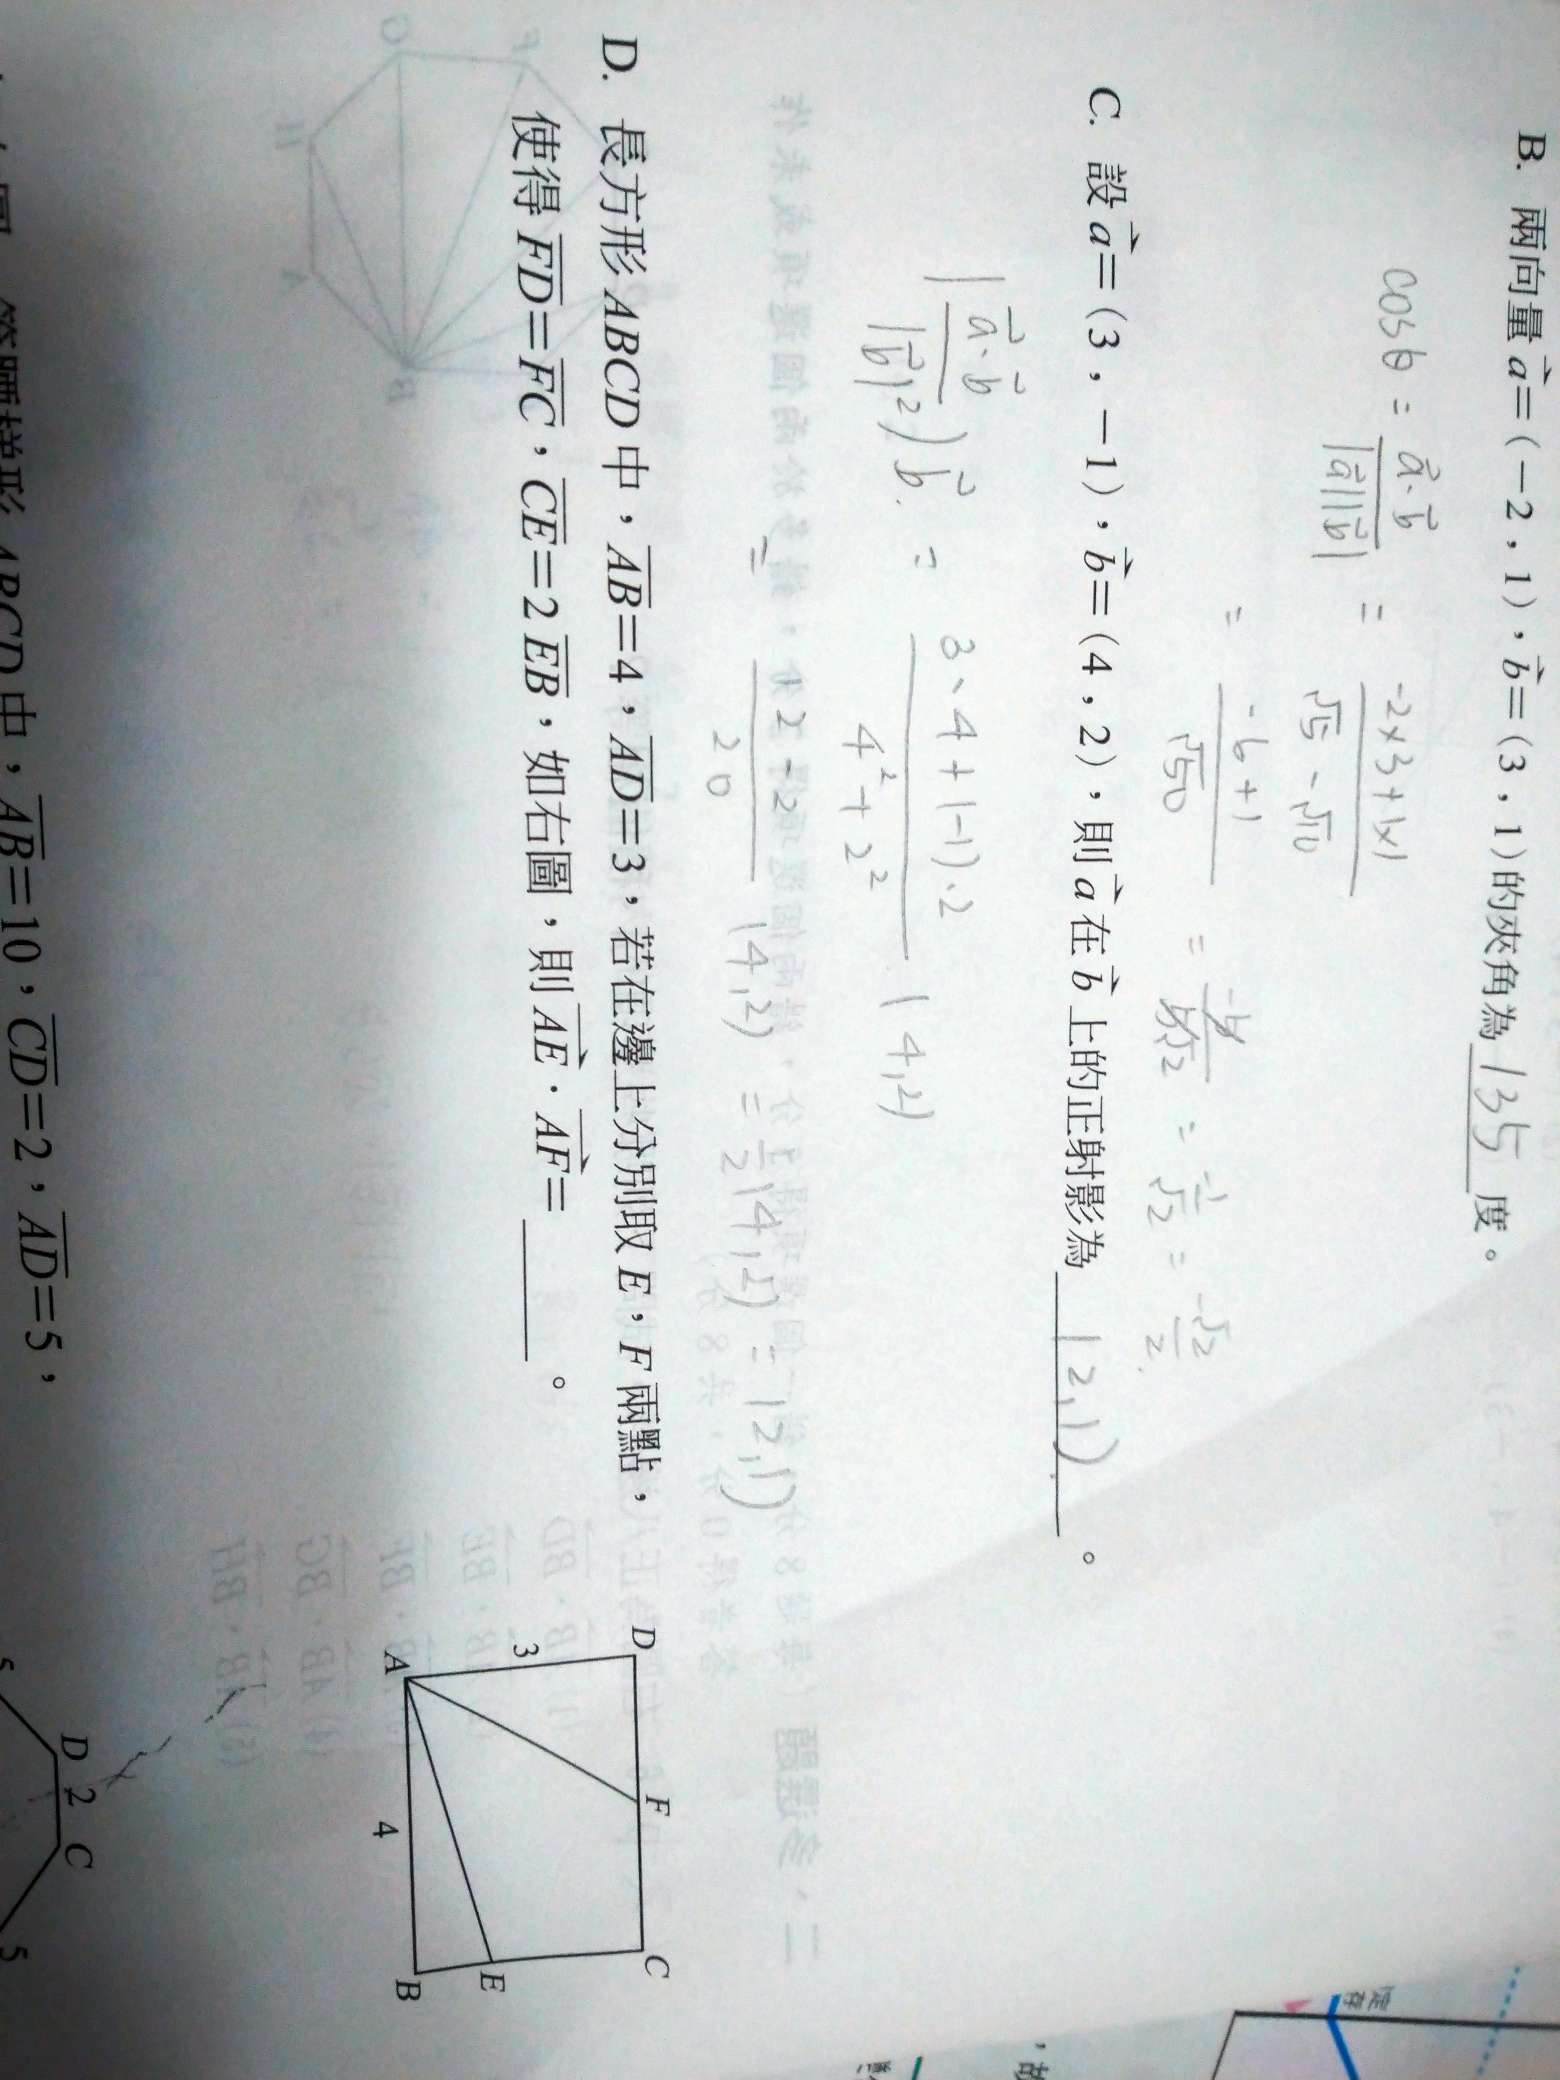 B. 兩向量 a⃗=(-2,1),b⃗=(3,1)的夾角為 135 度。
cosθ = a⃗·b⃗/|a⃗||b⃗| = -2×3+1×1/√5·√10
= -6+1/√50 = -5/5√2 = -1/√2 = -√2/2
C. 設 a⃗=(3,-1),b⃗=(4,2),則 a⃗ 在 b⃗ 上的正射影為 (2,1)。
(a⃗·b⃗/|b⃗|²)b⃗ = 3·4+(-1)·2/4²+2² (4,2)
= 12-2/20 (4,2) = 1/2(4,2) = (2,1)
D. 長方形 ABCD 中,AB=4,AD=3,若在邊上分別取 E,F 兩點,
使得 FD=FC,CE=2EB,如右圖,則 AE·AF= 。
D
F
C
3
A
E
4
B
ABCD 中,AB=10,CD=2,AD=5,
D 2 C
5
5